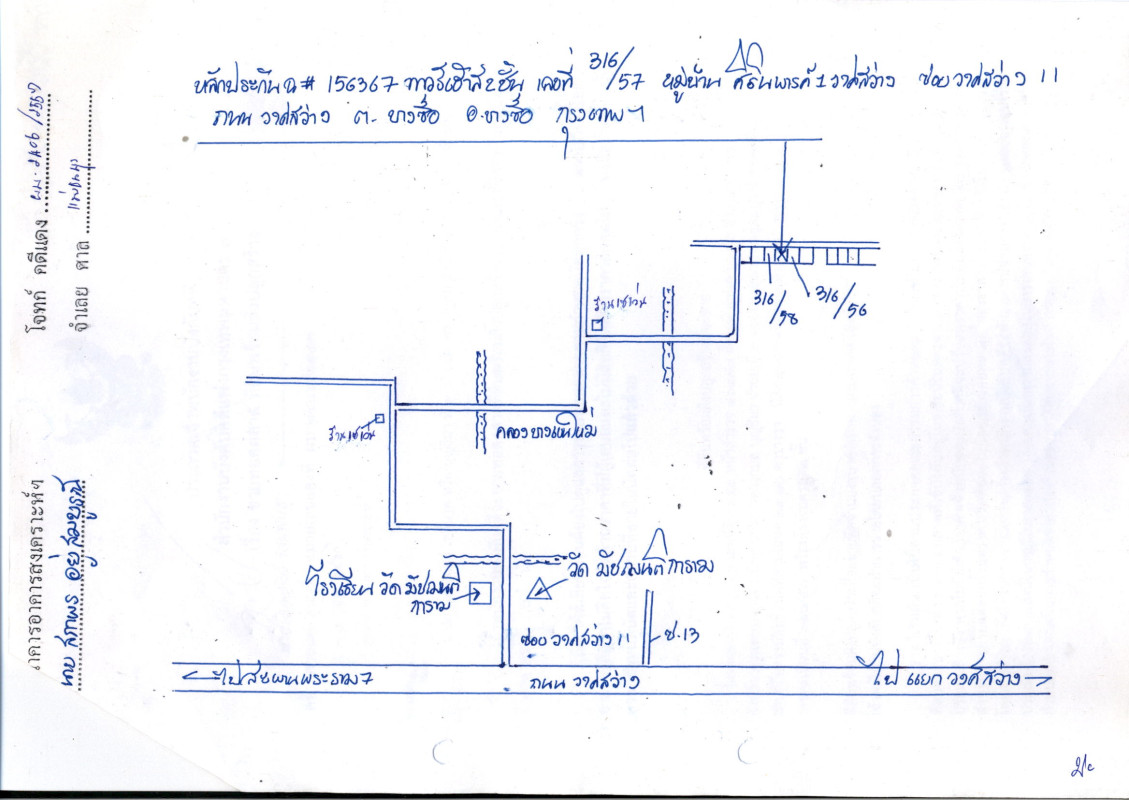 หลักประกัน ฉ # 156367 ทาวร์เฮ้าส์ 2 ชั้น เลขที่ 316/57 หมู่บ้าน วงศ์สว่าง ซอย วงศ์สว่าง 11
ถนน วงศ์สว่าง ต. บางซื่อ อ. บางซื่อ กรุงเทพฯ
ร้านเซเว่น
316/58
316/56
ร้านเซเว่น
คลองบางเขนใหม่
วัด มัชฌันติการาม
โรงเรียน วัด มัชฌันติ
การาม
ซอย วงศ์สว่าง 11
ซ.13
ไปสะพานพระราม 7
ถนน วงศ์สว่าง
ไป แยก วงศ์สว่าง
โจทก์ คดีแดง
จำเลย ศาล
ธนาคารอาคารสงเคราะห์ฯ
นาย สุภาพร อยู่สมบูรณ์